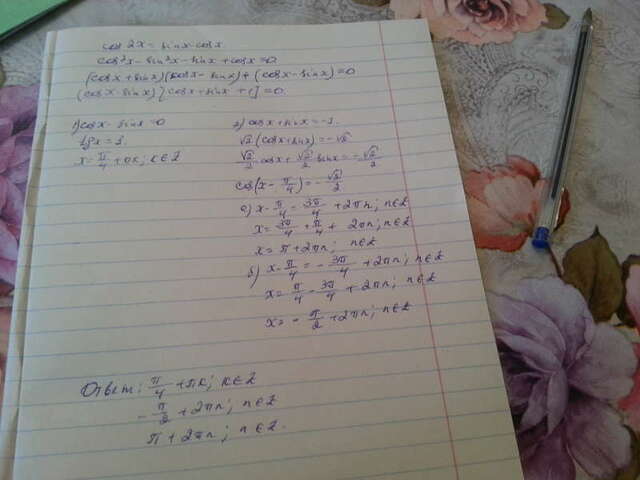 cos 2x = sin x - cos x
cos²x - sin²x - sin x + cos x = 0
(cos x + sin x)(cos x - sin x) + (cos x - sin x) = 0
(cos x - sin x)[cos x + sin x + 1] = 0
1) cos x - sin x = 0
tg x = 1.
x = π/4 + πk; k ∈ Z
2) cos x + sin x = -1.
√2 (cos x + sin x) = -√2
√2/2 cos x + √2/2 sin x = -√2/2
cos(x - π/4) = -√2/2
а) x - π/4 = 3π/4 + 2πn; n ∈ Z
x = 3π/4 + π/4 + 2πn; n ∈ Z
x = π + 2πn; n ∈ Z
б) x - π/4 = -3π/4 + 2πn; n ∈ Z
x = π/4 - 3π/4 + 2πn; n ∈ Z
x = -π/2 + 2πn; n ∈ Z
Ответ: π/4 + πk; k ∈ Z
-π/2 + 2πn; n ∈ Z
π + 2πn; n ∈ Z.